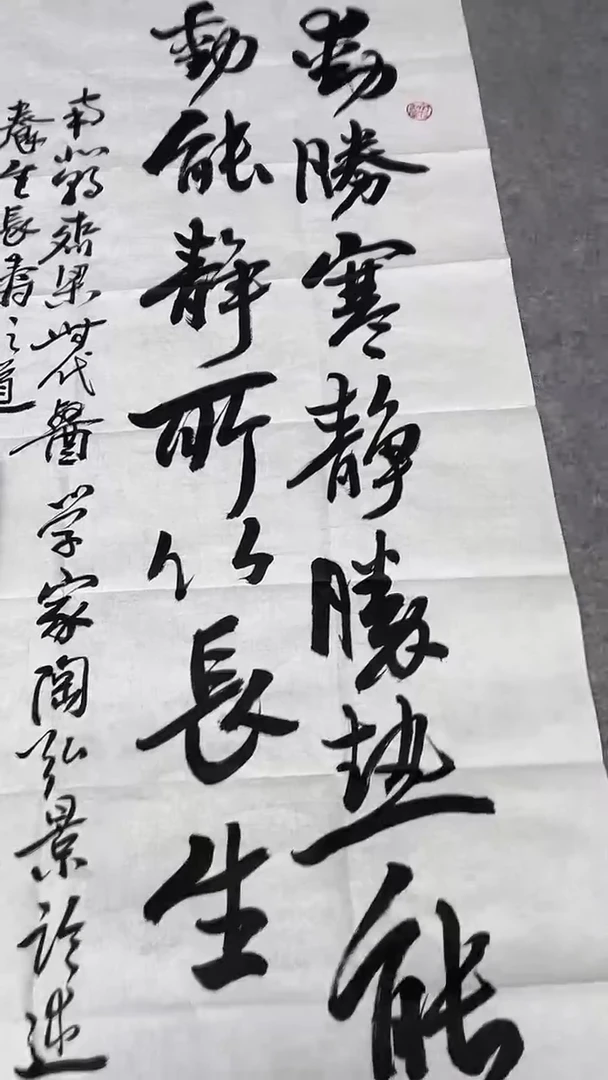 動勝寒静勝热能
動能静所以長生
南北朝齊梁時代醫学家陶弘景論述
養生長寿之道